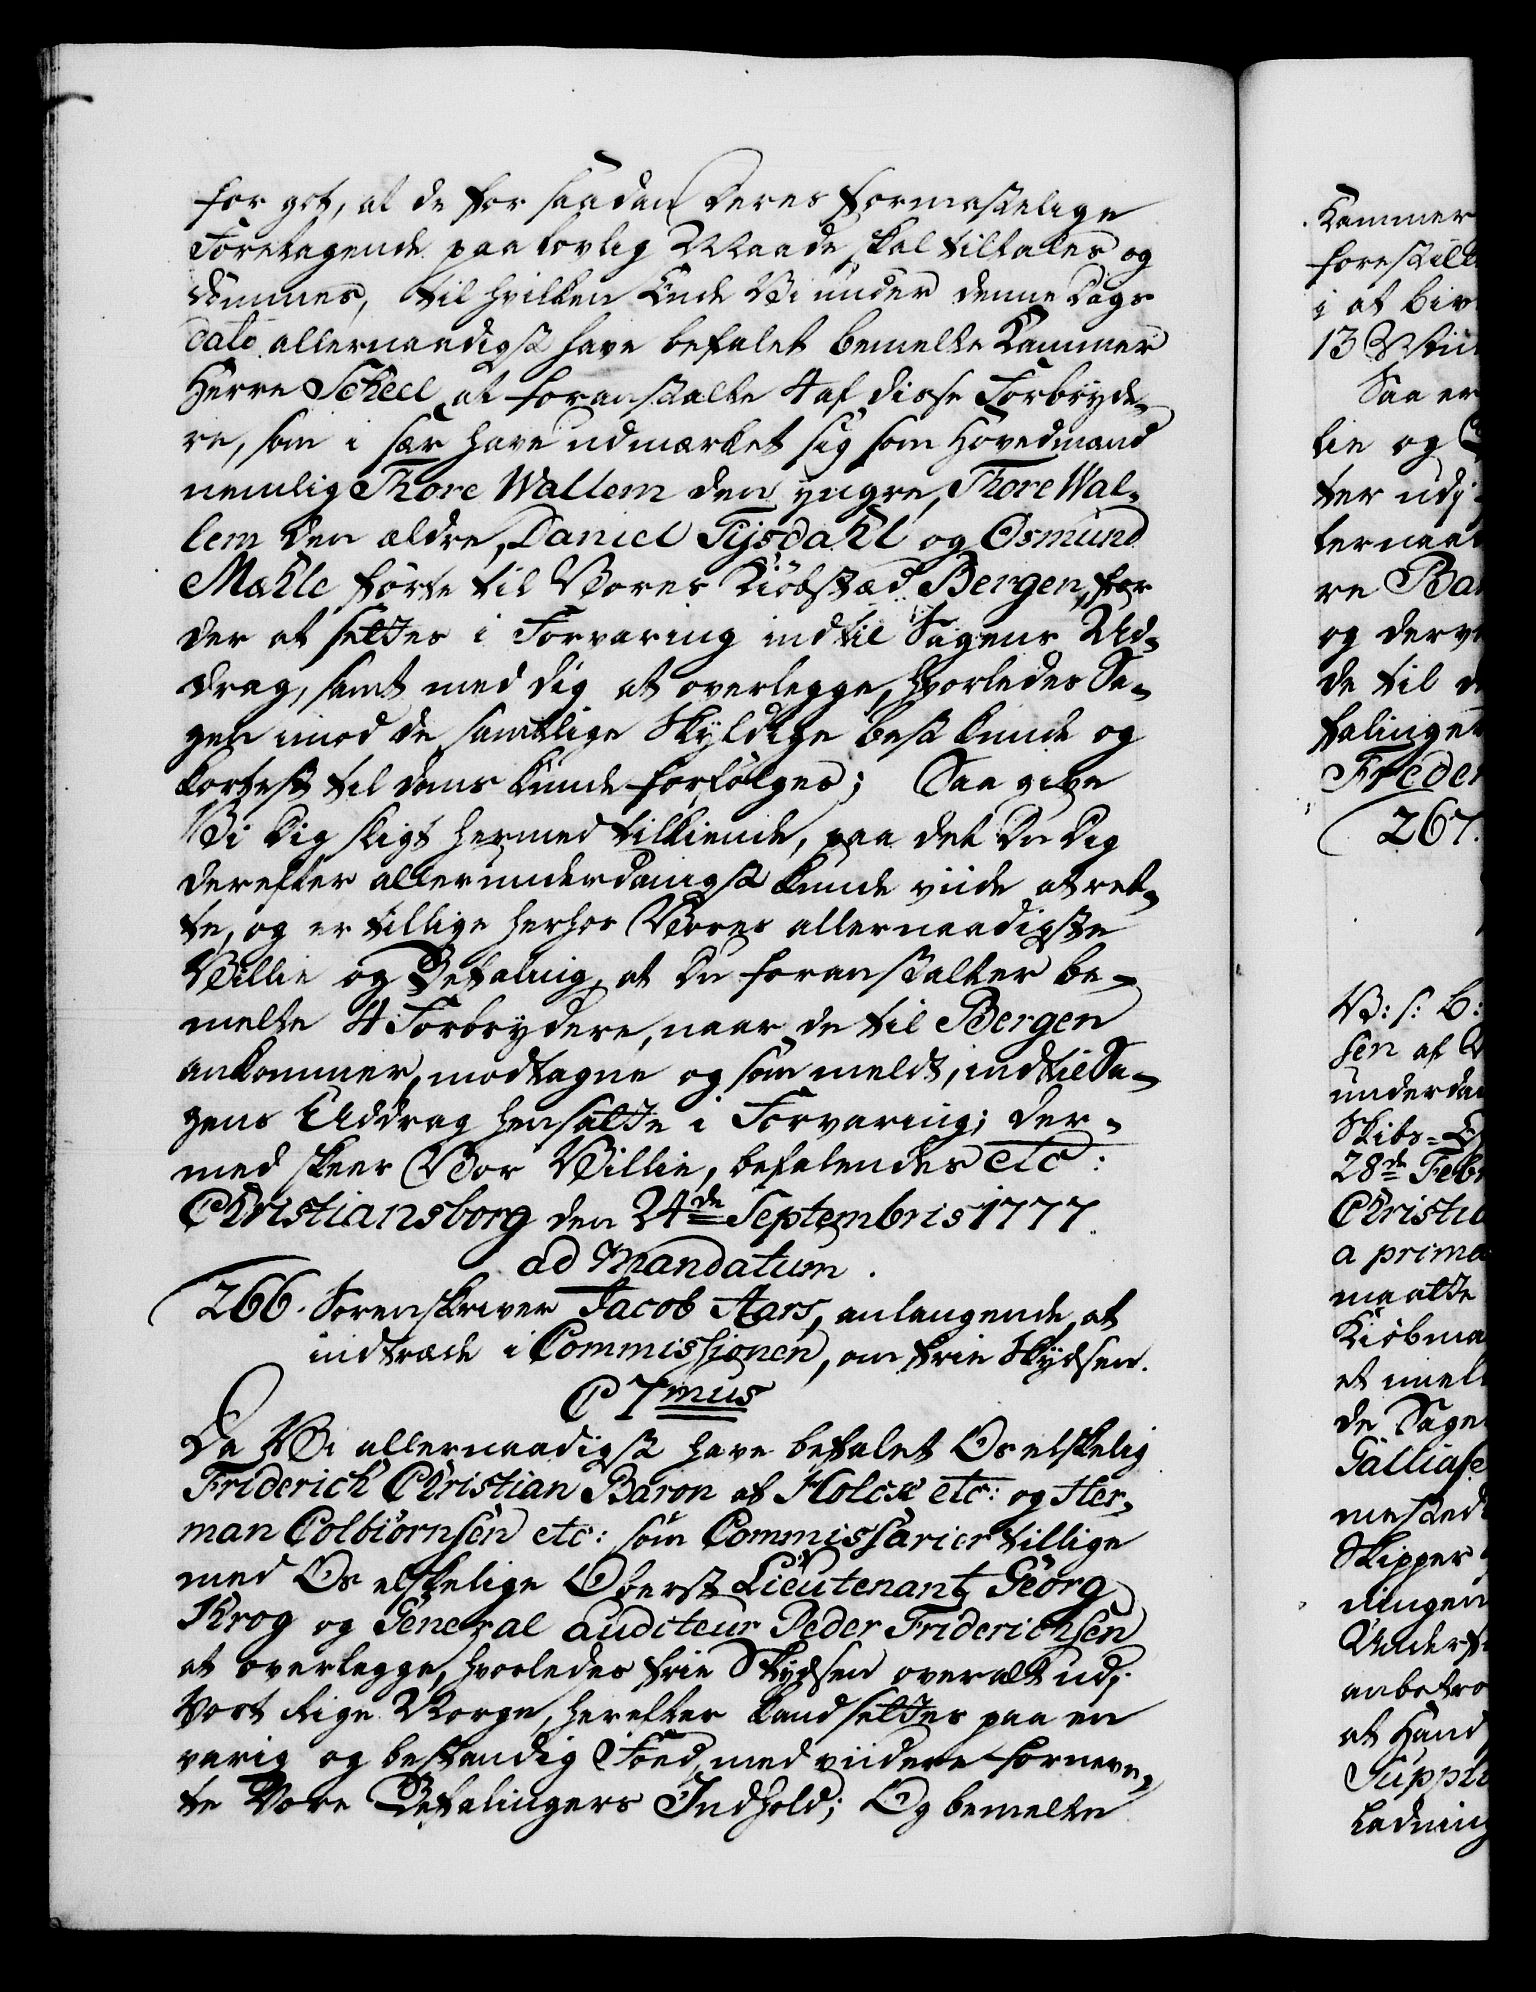 for got, at de for saadan Deres formastelige
Foretagende paa lovlig Maade skal tiltales og
dømmes, til hvilken Ende Vi under denne Dags
dato allernaadigst have befalet bemelte Kammer
Herre Scheel at foranstalte 4 af disse Forbryde-
re, som i sær have udmærket sig som Hovedmænd
nemlig Thore Wallem den yngre, Thore Wal-
lem den ældre, Daniel Tysdahl og Osmund
Mahle førte til Vores Kiøbstæd Bergen, for
der at settes i Forvaring indtil Sagens Ud-
drag, samt med dig at overlegge, hvorledes Sa-
gen imod de samtlige Skyldige best kunde og
kortest til doms kunde forfølges; Saa give
Vi dig sligt hermed tilkiende, paa det Du dig
derefter allerunderdanigst kunde viide at ret-
te, og er tillige herhos Vores allernaadigste
Villie og Befaling, at Du foranstalter be-
melte 4 Forbrydere, naar de til Bergen
ankommer, modtagne og som meldt, indtil Sa-
gens Uddrag hensatte i Forvaring; Der-
med skeer Vor Villie, befalendes etc:
Christiansborg den 24de Septembris 1777.
ad Mandatum.
266. Sorenskriver Jacob Aars, anlangende, at
indtræde i Commissionen, om frie Skydsen.
C 7mus
Da Vi allernaadigst have befalet Os elskelig
Friderich Christian Baron af Holck etc: og Her-
man Colbiørnsen etc: som Commissarier tillige
med Os elskelige Oberst Lieutenant Georg
Krog og General Auditeur Peder Friderichsen
at overlegge, hvorledes frie Skydsen overalt udi
Vort Rige Norge, herefter kand settes paa en
varig og bestandig Foed, med viidere fornevn-
te Vore Befalingers Indhold; Og bemelte
Kammer
forestill
i at biv
13
Saa er
lie og
ter udj
lernaa
re Ba
og derv
de til d
falinger
Freder
267.
V: s: b:
sen af
underda
Skibs-
28de Feb
Christia
a prima
maatte
Kiøbma
et imel
de Sage
Galliase
mested
Skipper
ringen
Underf
anbetro
at Hand
Suppli
Ladning